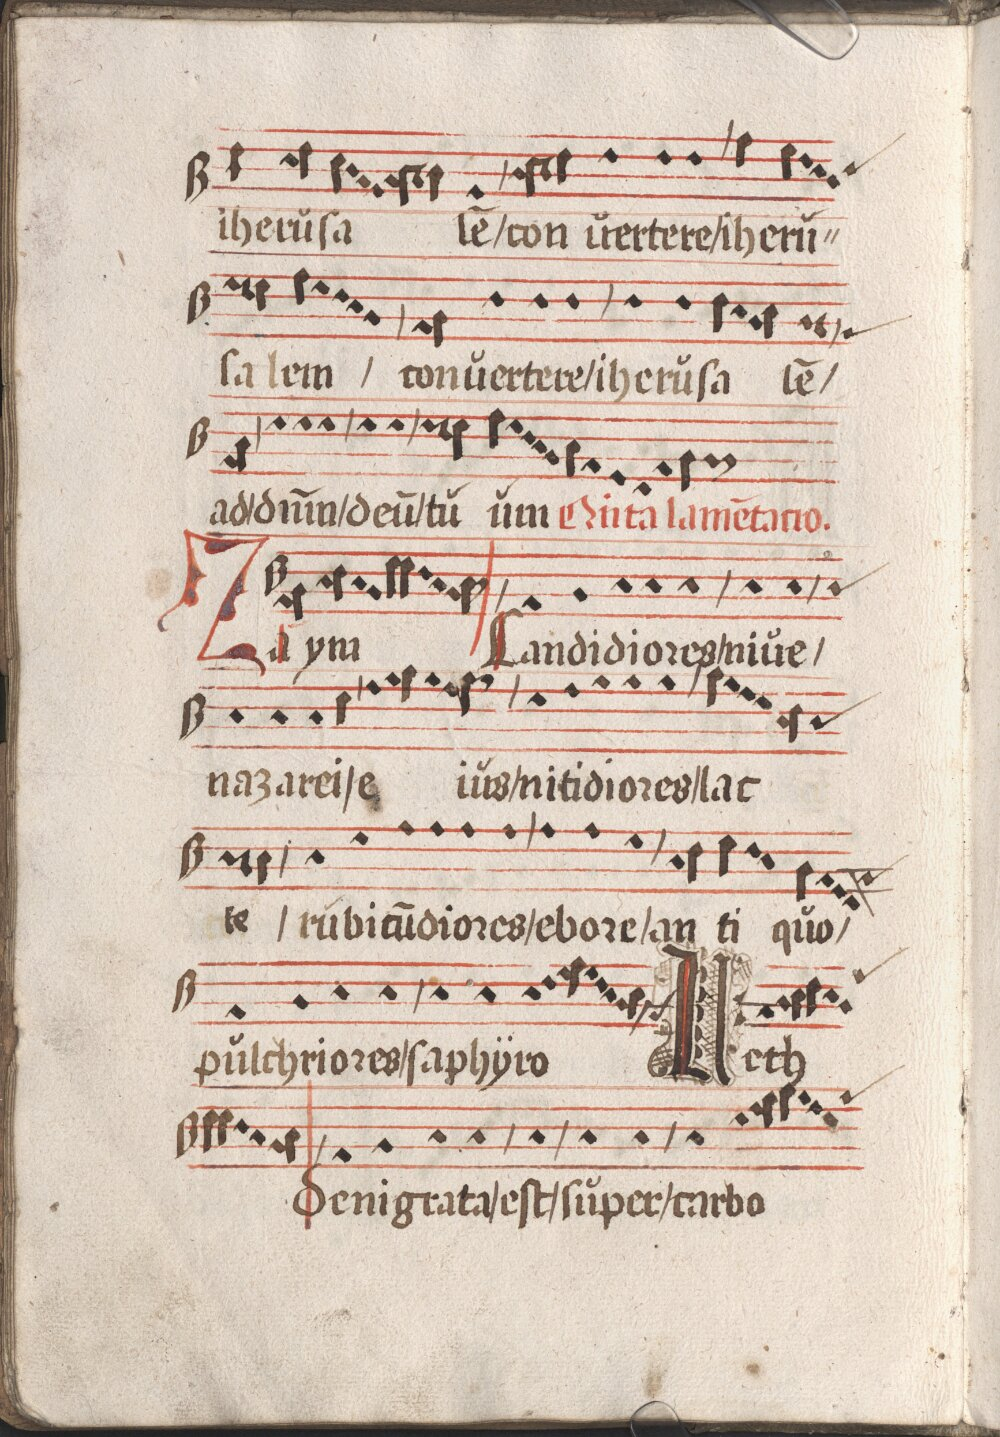 iherŭsa lē/con ŭertere/iherŭ〃
sa lem / conŭertere/iherŭsa lē/
ad/dn̄m/deū/tŭ ŭm Qŭīta lamētatio.
Zaym Candidiores/niŭe/
nazarei/e iŭs/nitidiores/lac
te / rŭbicūdiores/ebore/an ti qŭo/
pŭlchriores/saphÿro Heth
Denigrata/est/sŭper/carbo